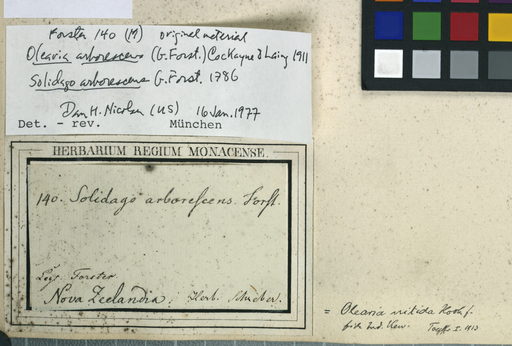 Forster 140 (M) original material
Olearia arborescens (G. Forst.) Cockayne & Laing 1911
Solidago arborescens G. Forst. 1786
Dan H. Nicolson (US) 16 Jan. 1977
Det. - rev. München
HERBARIUM REGIUM MONACENSE.
140. Solidago arborescens. Forst.
Leg. Forster
Nova Zeelandia. Herb. Schreber.
= Olearia nitida Hook f.
Ind. Kew.